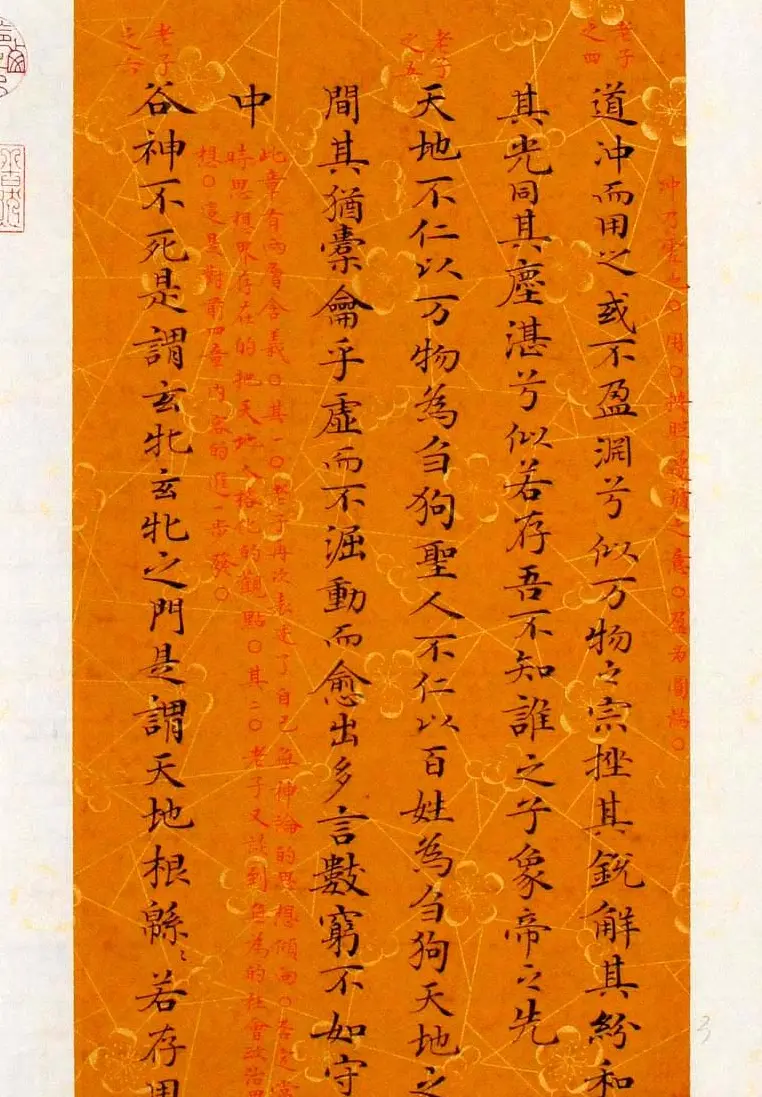 老子
之四
道冲而用之或不盈淵兮似万物之宗挫其鋭解其紛和
冲乃虚也〇用〇〇盈为圓满〇
其光同其塵湛兮似若存吾不知誰之子象帝之先
老子
之五
天地不仁以万物為刍狗聖人不仁以百姓為刍狗天地之
間其猶橐龠乎虚而不淈動而愈出多言數窮不如守
中
此章有两層含義〇其一〇老子再次表達了自己無神論的思想傾向〇否定當
時思想界存在的把天地人格化的觀點〇其二〇老子又談到無為的社會政治思
想〇這是對前四章内容的進一步發〇
老子
之六
谷神不死是謂玄牝玄牝之門是謂天地根緜〻若存用